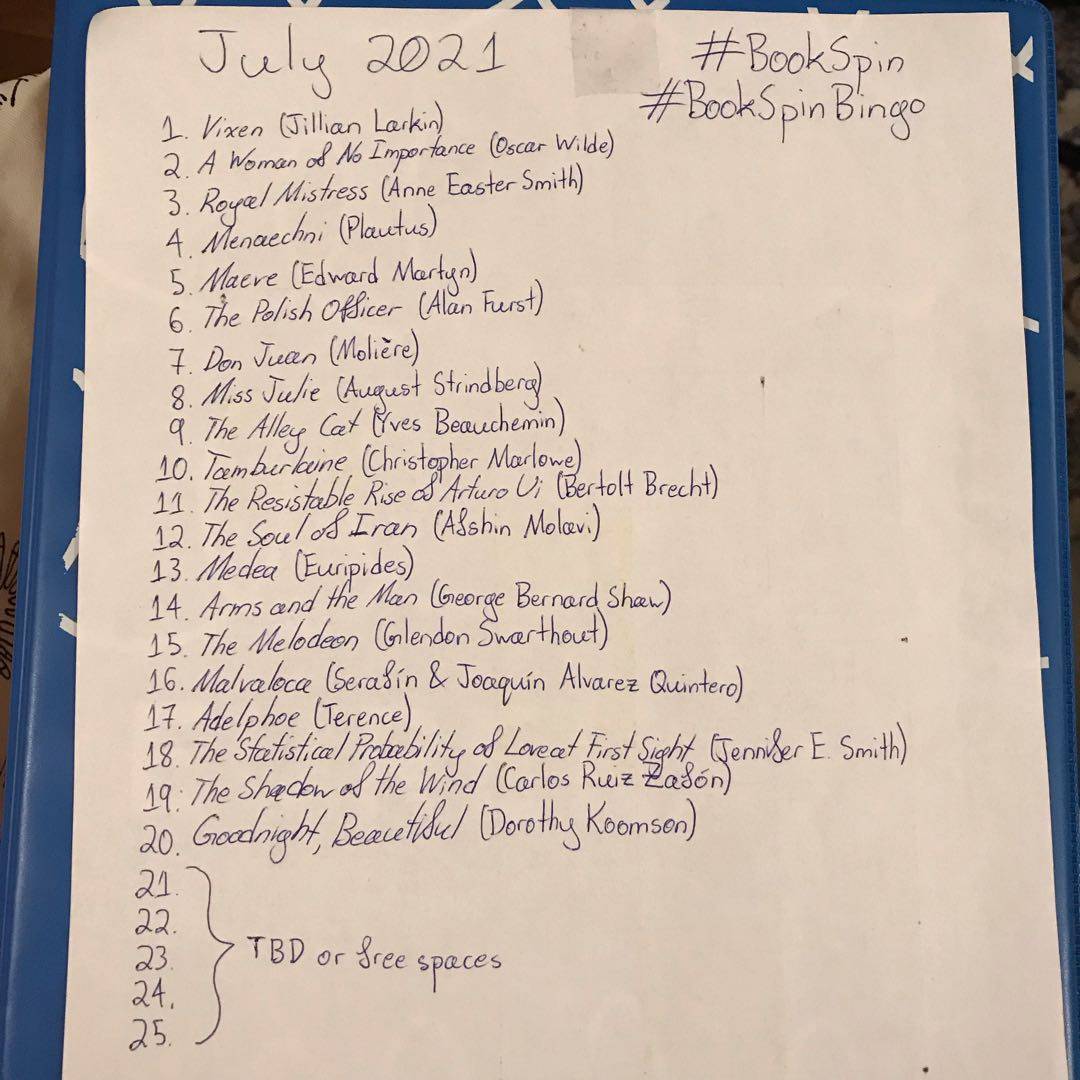 July 2021
#BookSpin
#BookSpinBingo
1. Vixen (Jillian Larkin)
2. A Woman of No Importance (Oscar Wilde)
3. Royal Mistress (Anne Easter Smith)
4. Menaechni (Plautus)
5. Maeve (Edward Martyn)
6. The Polish Officer (Alan Furst)
7. Don Juan (Molière)
8. Miss Julie (August Strindberg)
9. The Alley Cat (Yves Beauchemin)
10. Tamburlaine (Christopher Marlowe)
11. The Resistable Rise of Arturo Ui (Bertolt Brecht)
12. The Soul of Iran (Afshin Molavi)
13. Medea (Euripides)
14. Arms and the Man (George Bernard Shaw)
15. The Melodeon (Glendon Swarthout)
16. Malvaloca (Serafín & Joaquín Alvarez Quintero)
17. Adelphoe (Terence)
18. The Statistical Probability of Love at First Sight (Jennifer E. Smith)
19. The Shadow of the Wind (Carlos Ruiz Zafón)
20. Goodnight, Beautiful (Dorothy Koomson)
21.
22.
23.
TBD or free spaces
24.
25.